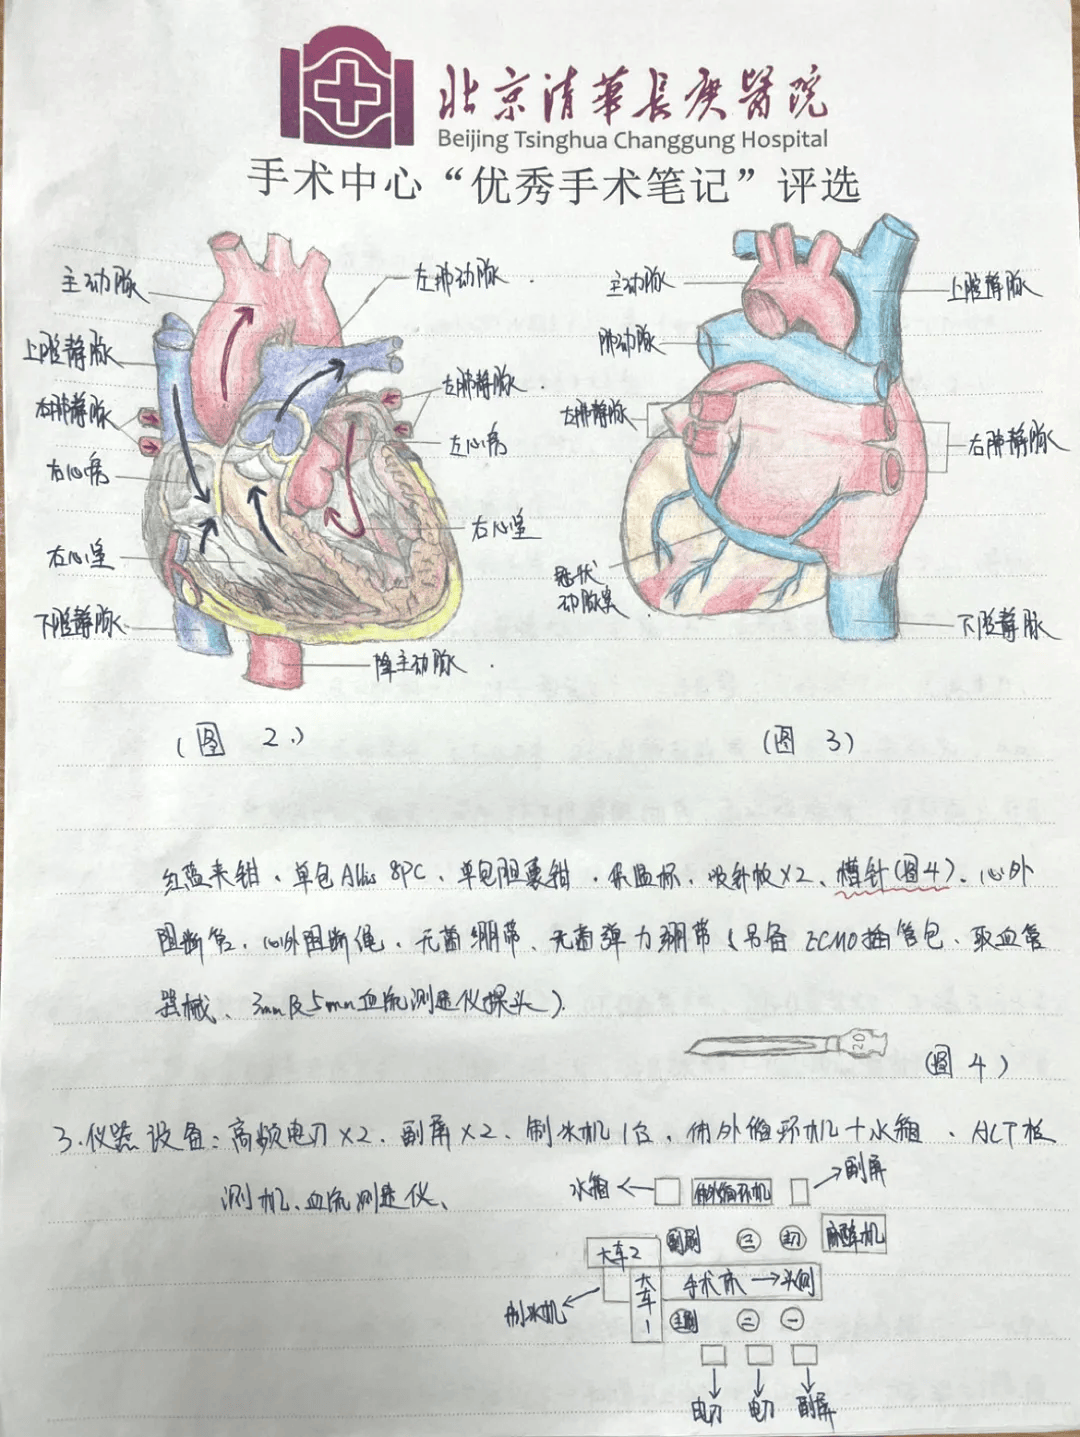 北京清華長庚醫院
Beijing Tsinghua Changgung Hospital
手术中心“优秀手术笔记”评选
主动脉
上腔静脉
右肺静脉
右心房
右心室
下腔静脉
左肺动脉
左肺静脉
左心房
右心室
降主动脉
(图 2.)
主动脉
肺动脉
左肺静脉
冠状
动脉窦
上腔静脉
右肺静脉
下腔静脉
(图 3)
红蓝夹钳、单包Allis 8PC、单包胆囊钳、吸针板×2、槽针(图4)、心外
阻断管、心外阻断绳、无菌绷带、无菌弹力绷带(另备 ECMO插管包、取血管
器械、3mm及5mm血流测速仪探头).
20
(图 4)
3.仪器设备:高频电刀×2、副屏×2、制冰机1台、体外循环机+水箱、ACT检
测机、血流测速仪、
水箱
体外循环机
副屏
大车2
副刷
三
麻醉机
大车1
手术床→头侧
制冰机
主刷
二
一
电刀
电刀
副屏